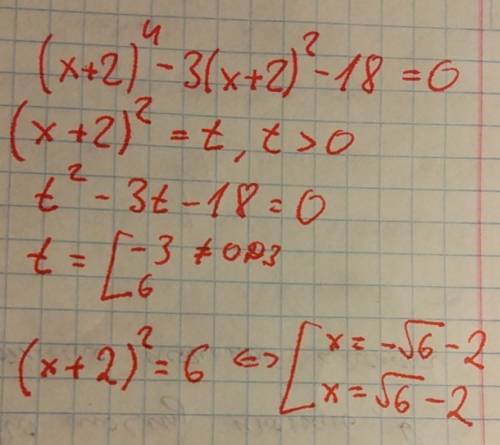 (x+2)⁴ - 3(x+2)² - 18 = 0
(x+2)² = t, t > 0
t² - 3t - 18 = 0
t = [ -3 ≠ ОДЗ
6
(x+2)² = 6 <=> [ x = -√6 - 2
x = √6 - 2